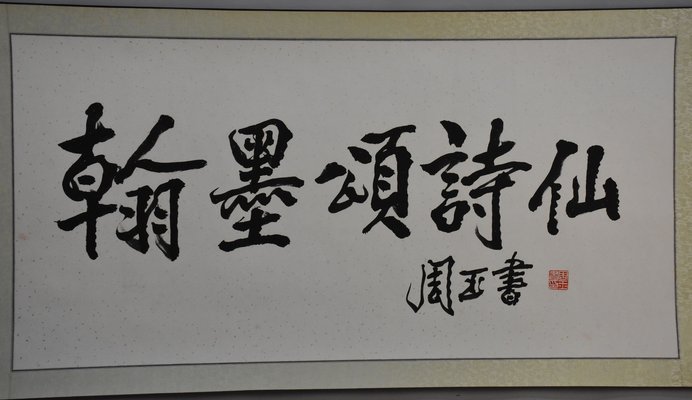 翰墨頌詩仙
周正書